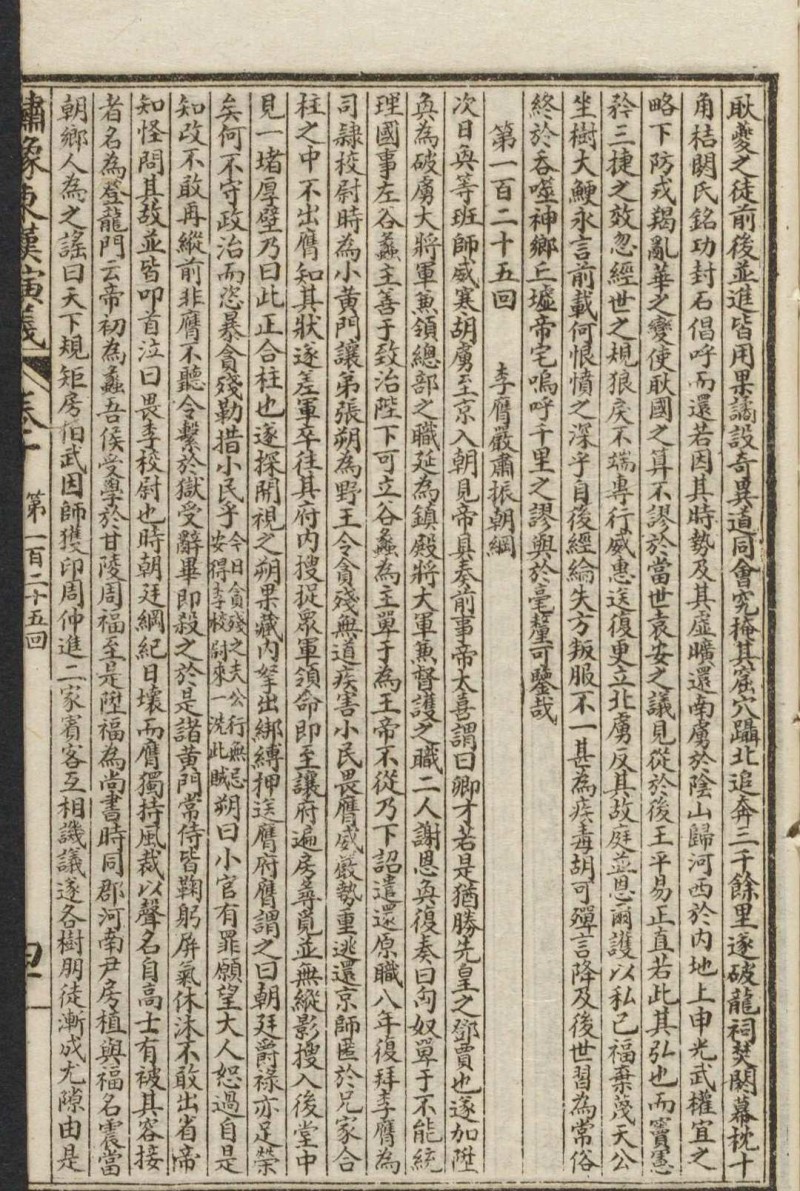 耿夔之徒前後並進皆用果譎設奇異道同會究掩其窟穴躡北追奔三千餘里遂破龍祠焚闕幕枕十
角梏閼氏銘功封石倡呼而還若因其時勢及其虛曠還南虜於陰山歸河西於內地上申光武權宜之
略下防戎羯亂華之變使耿國之算不謬於當世袁安之議見從於後王平易正直若此其弘也而竇憲
矜三捷之效忽經世之規狼戾不端專行威惠迭復更立北虜反其故庭並恩兩護以私己福棄蔑天公
坐樹大鯁永言前載何恨憤之深乎自後經綸失方叛服不一其為疾毒胡可殫言降及後世習為常俗
終於吞噬神鄉丘墟帝宅嗚呼千里之謬興於毫釐可鑒哉
第一百二十五回　李膺嚴肅振朝綱
次日奐等班師威寒胡虜至京入朝見帝具奏前事帝大喜謂曰卿才若是猶勝先皇之鄧賈也遂加陞
奐為破虜大將軍兼領總部之職延為鎮殿將大軍兼督護之職二人謝恩奐復奏曰匈奴單于不能統
理國事左谷蠡王善于致治陛下可立谷蠡為主單于為王帝不從乃下詔遣還原職八年復拜李膺為
司隸校尉時為小黃門讓弟張朔為野王令貪殘無道疾害小民畏膺威嚴勢重逃還京師匿於兄家合
柱之中不出膺知其狀遂差軍卒往其府內搜捉眾軍領命即至讓府遍房尋覓並無縱影搜入後堂中
見一堵厚壁乃曰此正合柱也遂探開視之朔果藏內拏出綁縛押送膺府膺謂之曰朝廷爵祿亦足榮
矣何不守政治而恣暴貪殘勒措小民乎今日貪殘之夫公行無忌安得李校尉來一洗此賊朔曰小官有罪願望大人恕過自是
知改不敢再縱前非膺不聽令繫於獄受辭畢即殺之於是諸黃門常侍皆鞠躬屏氣休沐不敢出省帝
知怪問其故並皆叩首泣曰畏李校尉也時朝廷綱紀日壞而膺獨持風裁以聲名自高士有被其容接
者名為登龍門云帝初為蠡吾侯受學於甘陵周福至是陞福為尚書時同郡河南尹房植與福名震當
朝鄉人為之謠曰天下規矩房伯武因師獲印周仲進二家賓客互相譏議遂各樹朋徒漸成尤隙由是
繡像東漢演義　卷十　第一百二十五回